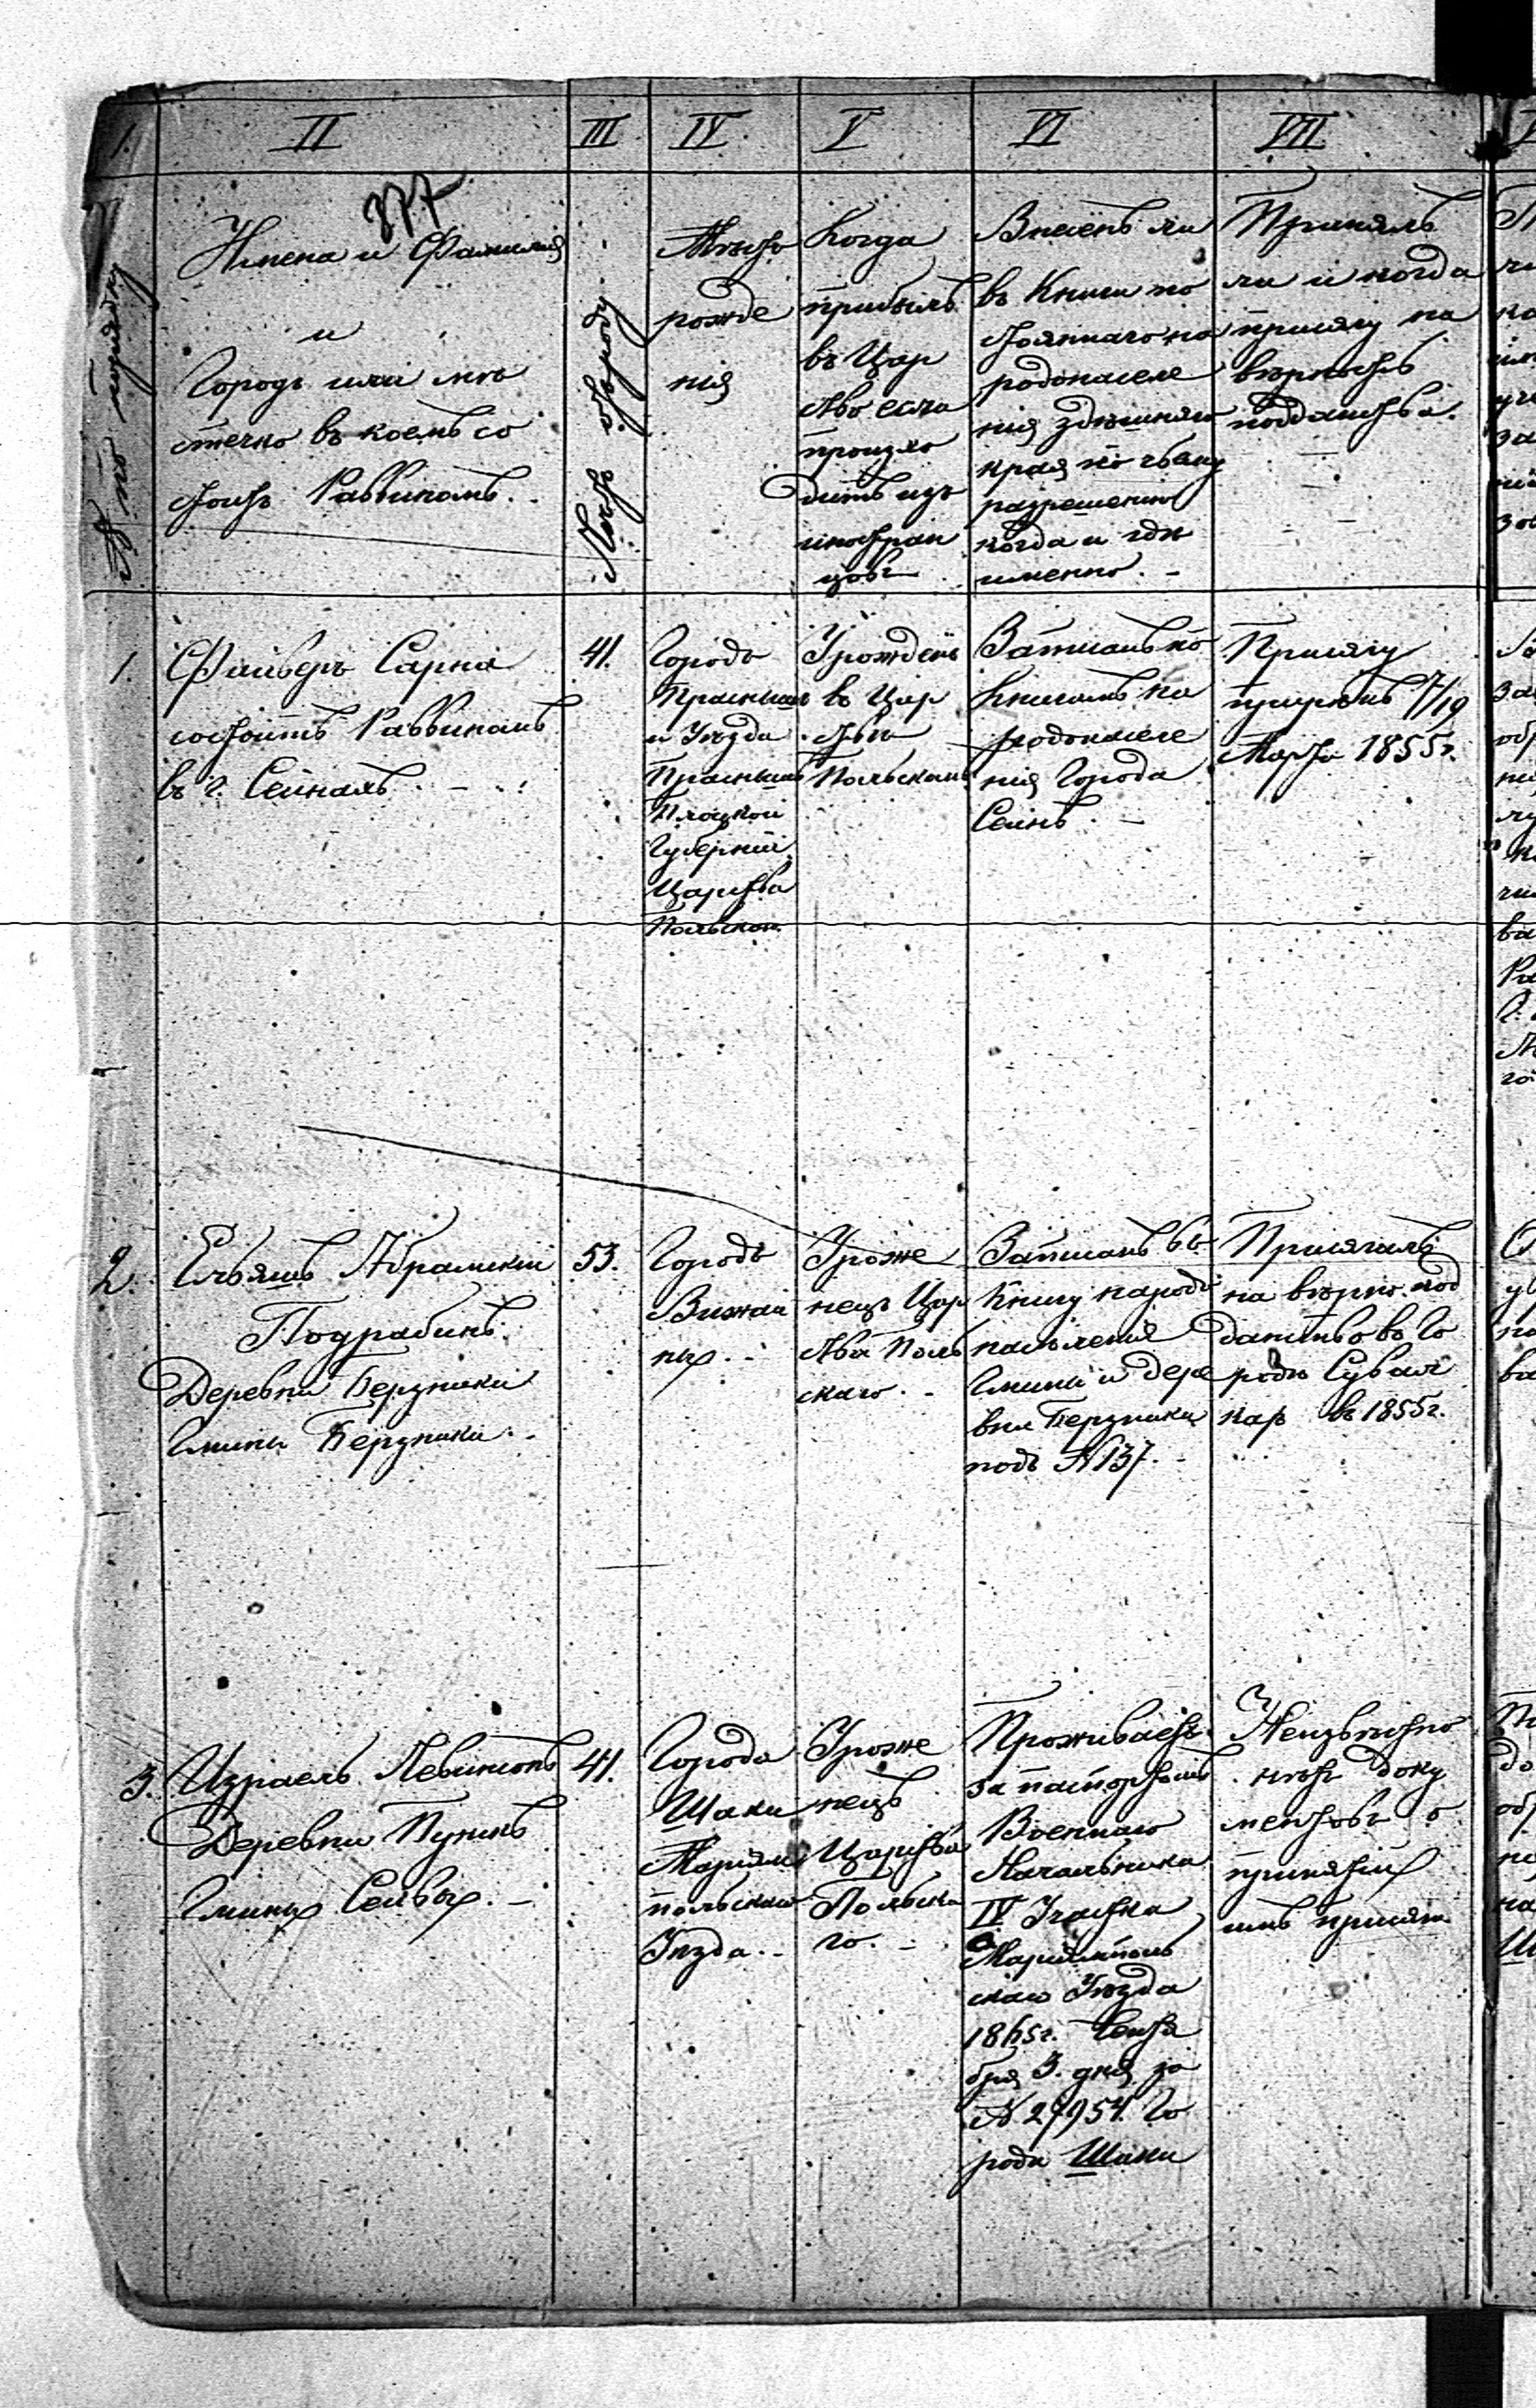 I.
II
III
IV
V
VI
VII
377
№ по порядку
Имена и Фамилия
и
Городъ или мѣ
стечко въ коемъ со
стоитъ Раввиномъ.
Лѣтъ отъ роду
Мѣсто
рожде
нія
Когда
прибылъ
въ Цар
ство если
происхо
дитъ изъ
иностран
цовъ
Внесенъ ли
въ Книги по
стояннаго на
родонаселе
нія здѣшняго
края по чьему
разрешенію
когда и гдѣ
именно. –
Принялъ
ли и когда
присягу на
вѣрность
подданства.
1.
Файверъ Сарна
состоитъ Раввиномъ
въ г. Сейнахъ.
41.
Городъ
Праснышъ
и Уѣзда
Праснышъ
Плоцкой
Губерніи
Царства
Польскаго
Урожденъ
въ Цар
ствѣ
Польскомъ
Записанъ по
книгамъ на
родонаселе
нія Города
Сейнъ. –
Присягу
принялъ 7/19
Марта 1855 г.
2.
Ельяшъ Абрамскій
Подрабинъ.
Деревни Бержники
Гмины Бержники.
53.
Городъ
Вижай
ны.
Уроже
нецъ Цар
ства Поль
скаго.
Записанъ въ
Книгу народо
населенія
Гмины и дере
вни Бержники
подъ № 137.
Присягалъ
на вѣрно под
данство въ Го
родѣ Сувал
кахъ въ 1855 г.
3.
Израель Левинсонъ
Деревни Пунскъ
Гмины Сейвы. –
41.
Города
Шаки
Маріям
польскаго
Уѣзда.
Уроже
нецъ
Царства
Польска
го.
Проживаетъ
за паспортомъ
Военнаго
Начальника
IV Участка
Маріямполь
скаго Уѣзда
1865 г. Сентя
бря 3. дня за
№ 27954. Го
рода Шаки
Неизвѣстно
нѣтъ доку
ментовъ о
принятіи
имъ присяги.